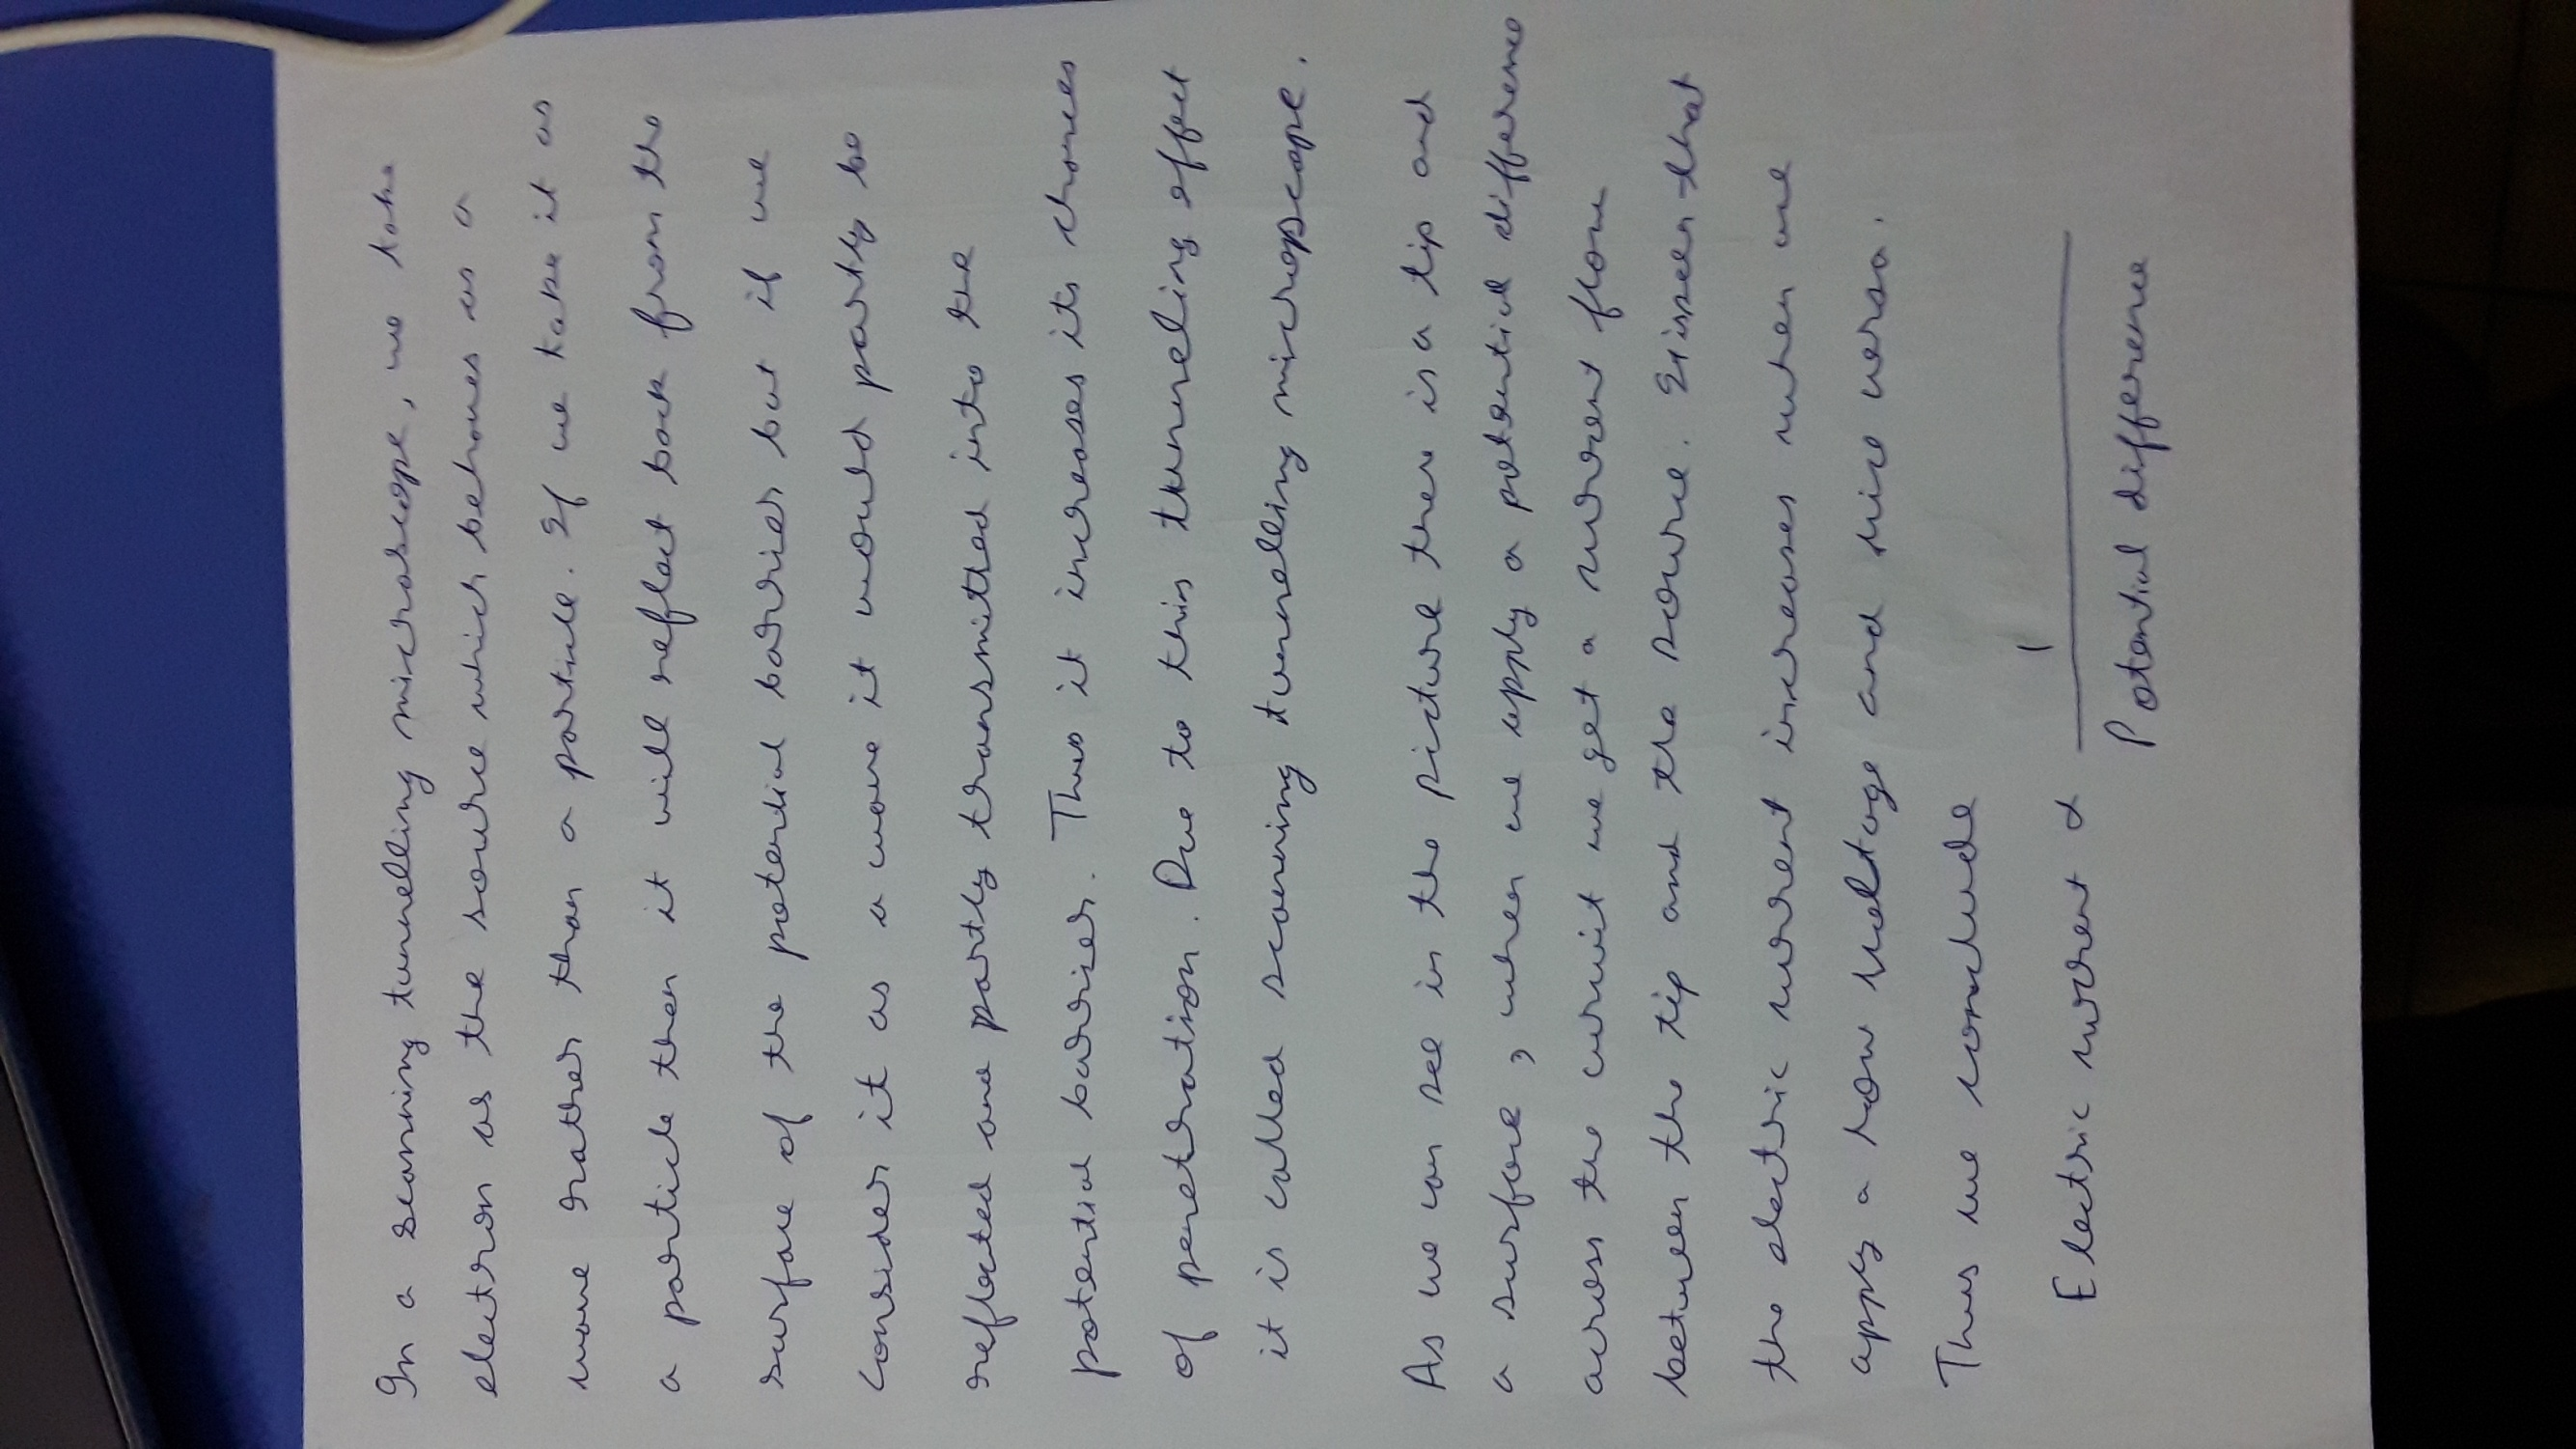 In a scanning tunnelling microscope, we take
electron as the source which behaves as a
wave rather than a particle. If we take it as
a particle then it will reflect back from the
surface of the potential barrier but if we
consider it as a wave it would partly be
reflected and partly transmitted into the
potential barrier. Thus it increases its chances
of penetration. Due to this tunneling effect
it is called scanning tunnelling micropscope.
As we can see in the picture there is a tip and
a surface, when we apply a potential difference
across the curuit we get a current flow
between the tip and the source. It is seen that
the electric current increases when we
apply a low voltage and vice versa.
Thus we conclude
Electric current α 1
Potential difference